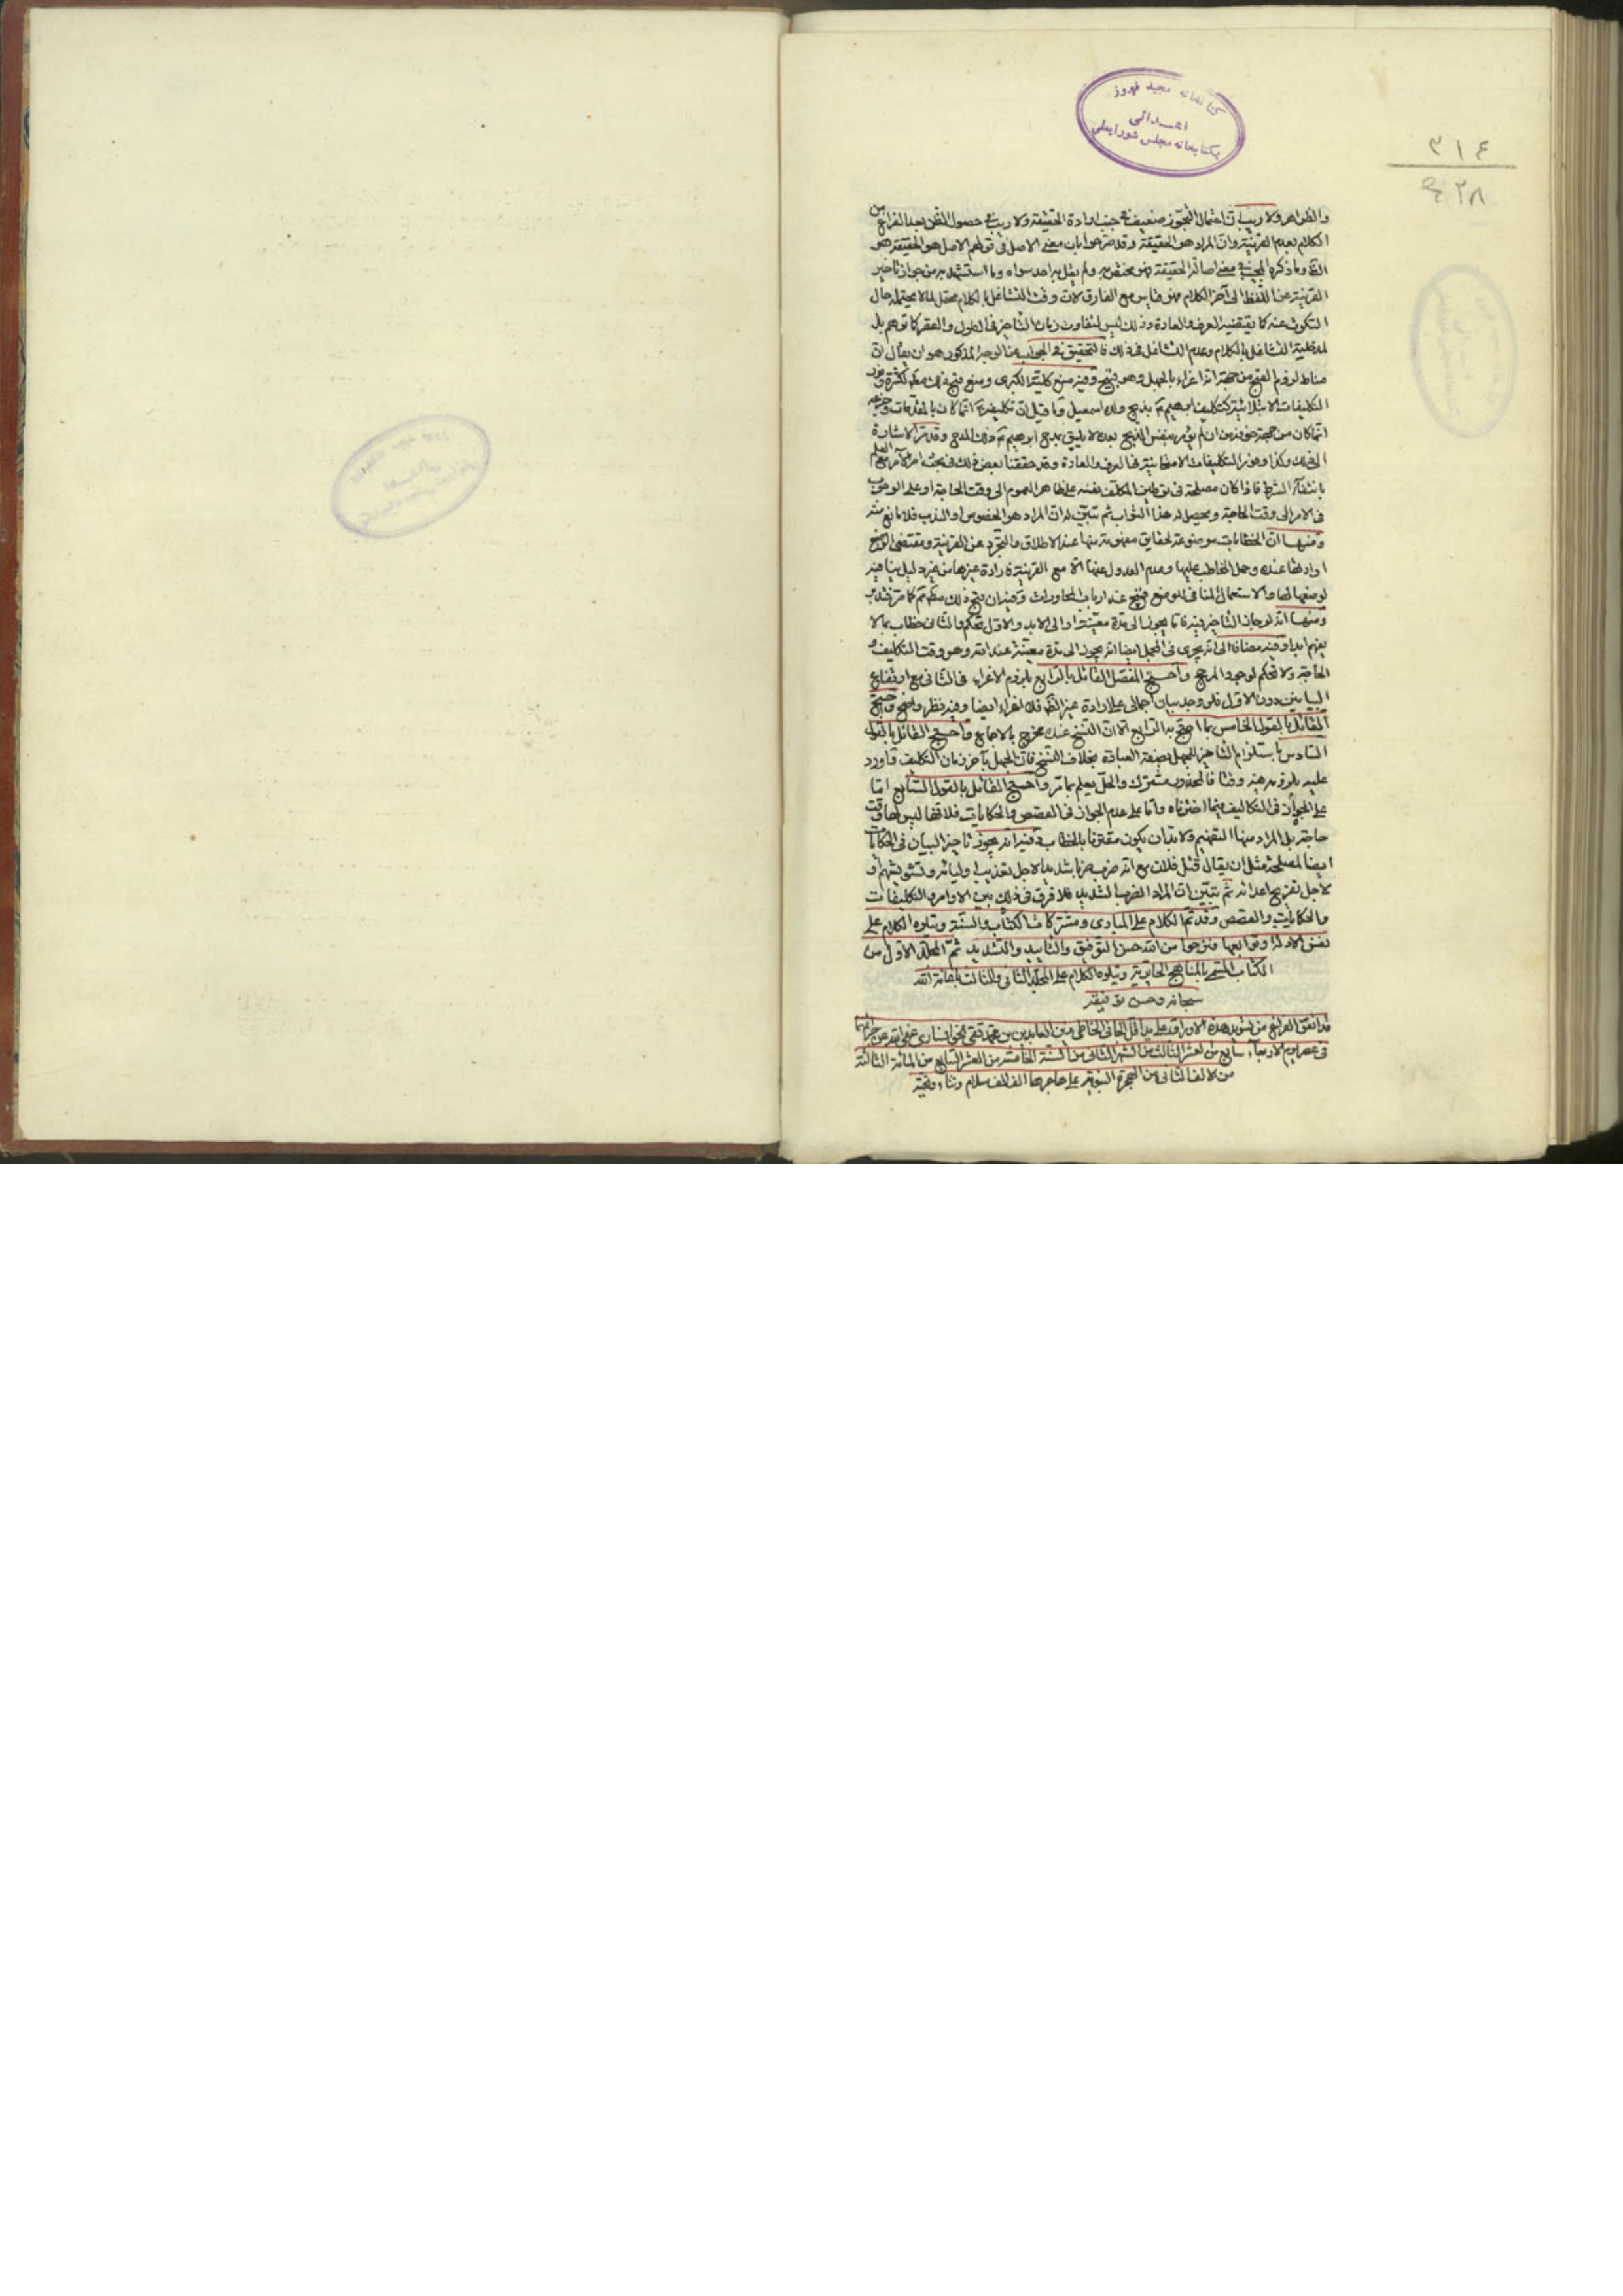 كتابخانه مجيد فيروز
اهدائى
بكتابخانه مجلس شورايملى
٣١٤
والظواهر ولا ريب ان احتمال التجوز ضعيف فى جنب ارادة الحقيقة ولا ريب فى حصول الظن بعد الفراغ من
الكلام بعدم القرينة وان المراد هو الحقيقة وقد صرحوا بان معنى الاصل فى قولهم الاصل هو الحقيقة هو
الظ وما ذكره المجيب فى معنى اصالة الحقيقة فهو مختص به ولم يقل به احد سواه وما استشهد به من جواز تاخير
القرينة عن اللفظ الى آخر الكلام فهو قياس مع الفارق لان وقت التشاغل بالكلام محتمل لما لا يحتمله حال
السكوت عنه كما يقتضيه العرف والعادة وذلك ليس لتفاوت زمان التاخير فى الطول والقصر كما توهم بل
لمدخلية التشاغل بالكلام وعدم التشاغل فى ذلك فالتحقيق فى الجواب عن الوجه المذكور هو ان يقال ان
مناط لزوم القبح من جهة انه اغراء بالجهل وهو قبيح وفيه منع كلية الكبرى ومنع قبح ذلك مطلقا لكثرة وقوع
التكليفات الابتلائية كتكليف ابرهيم ع بذبح ولده اسمعيل وما قيل ان تكليفه ع انما كان بالمقدمات وجزعه
انما كان من جهة خوفه من ان يؤمر بنفس الذبح بعده لا يليق بمدح ابرهيم ع ذلك المدح وقد مر الاشارة
الى ذلك وكذا وفور التكليفات الامتحانية فى العرف والعادة وقد حققنا بعض ذلك فى بحث امر الآمر مع العلم
بانتفاء الشرط فاذا كان مصلحة فى توطين المكلف نفسه على ظاهر العموم الى وقت الحاجة او على الوجوب
فى الامر الى وقت الحاجة ويحصل له هذا الثواب ثم تبين له ان المراد هو الخصوص او الندب فلا مانع منه
ومنها ان الخطابات موضوعة لحقايق مفهومة منها عند الاطلاق والتجرد عن القرينة ومقتضى الوضع
ارادتها عنده وحمل المخاطب عليها وعدم العدول عنها الا مع القرينة فارادة غيرها من غير دليل ينافيه
لوضعها لها والاستعمال المنافى للوضع قبيح عند ارباب المحاورات وفيه ان قبح ذلك مطلقا مم كما مر فتدبر
ومنها انه لو جاز التاخير فيه فاما يجوز الى مدة معينة او الى الابد والاول تحكم والثانى خطاب بما لا
يفهم ابدا وفيه مضافا الى انه يجرى فى المجمل ايضا انه يجوز الى مدة معينة عند الله وهو وقت التكليف و
الحاجة ولا تحكم لوجود المرجح واحتج المفصل القائل بالرابع بلزوم الاغراء فى الثانى مع انتفاء
البيانين دون الاول فلو وجد بيان اجمالى على ارادة غير الظ فلا اغراء ايضا وفيه نظر واضح واحتج
القائل بالقول الخامس بما احتج به الرابع الا ان النسخ عنده مخرج بالاجماع واحتج القائل بالقول
السادس باستلزام التاخير للجهل بصفة العبادة بخلاف النسخ فان الجهل بآخر زمان التكليف واورد
عليه بلزومه فيه وقتا فالمحذور مشترك والحل يعلم بما مر واحتج القائل بالقول السابع اما
على الجواز فى التكاليف فبما اخترناه واما على عدم الجواز فى القصص والحكايات فلانها ليس لها وقت
حاجة بل المراد منها التفهيم ولا بد ان يكون مقترنا بالخطاب وفيه انه يجوز تاخير البيان فى الحكايات
ايضا لمصلحة مثل ان يقال قتل فلان مع انه ضرب ضربا شديدا لاجل تعذيب اوليائه وتشويشهم او
لاجل تفريح اعدائه ثم يتبين ان المراد الضرب الشديد فلا فرق فى ذلك بين الاوامر والتكليفات
والحكايات والقصص وقد تم الكلام على المبادى ومشتركات الكتاب والسنة ويتلوه الكلام على
نفس الادلة وتوابعها فنرجوا من الله حسن التوفيق والتاييد والتسديد تم المجلد الاول من
الكتاب المسمى بالمناهج الحايرية ويتلوه الكلام على المجلد الثانى والثالث باعانة الله
سبحانه وحسن توفيقه
قد اتفق الفراغ من تسويد هذه الاوراق على يد اقل الجانى الخاطى زين العابدين بن محمد تقى الخوانسارى عفى الله عن جرائمهما
فى عصر يوم الاربعاء سابع من العشر الثالث من الشهر الثانى من السنة الخامسة من العشر السابع من المائة الثالثة
من الالف الثانى من الهجرة النبوية على هاجرها الف الف سلام وثناء وتحية